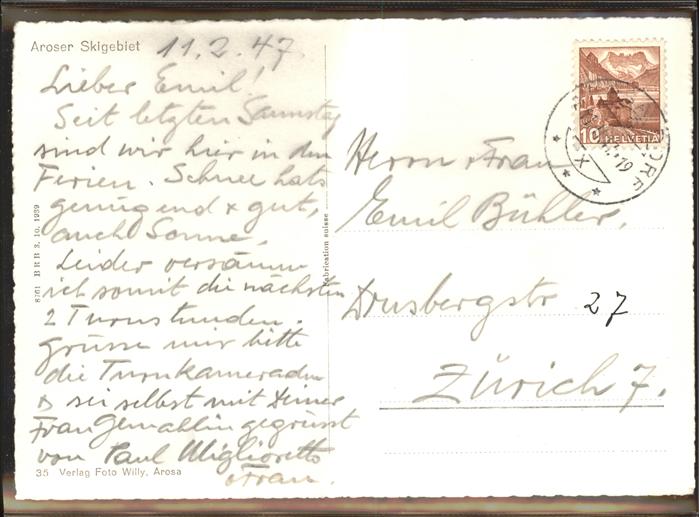 Aroser Skigebiet
11.2.47.
Lieber Emil!
Seit letzten Samstag
sind wir hier in den
Ferien. Schnee hats
genügend & gut,
auch Sonne.
Leider versäum
ich somit die nächsten
2 Turnstunden.
Grüsse mir bitte
die Turnkameraden
& sei selbst mit Deiner
Frau Gemahlin gegrüsst
von Paul Miglioretto
& Frau.
35 Verlag Foto Willy, Arosa
8761 BRB 3. 10. 1939
Fabrication suisse
10 HELVETIA
Herrn & Frau
Emil Bühler,
Drusbergstr 27
Zürich 7.